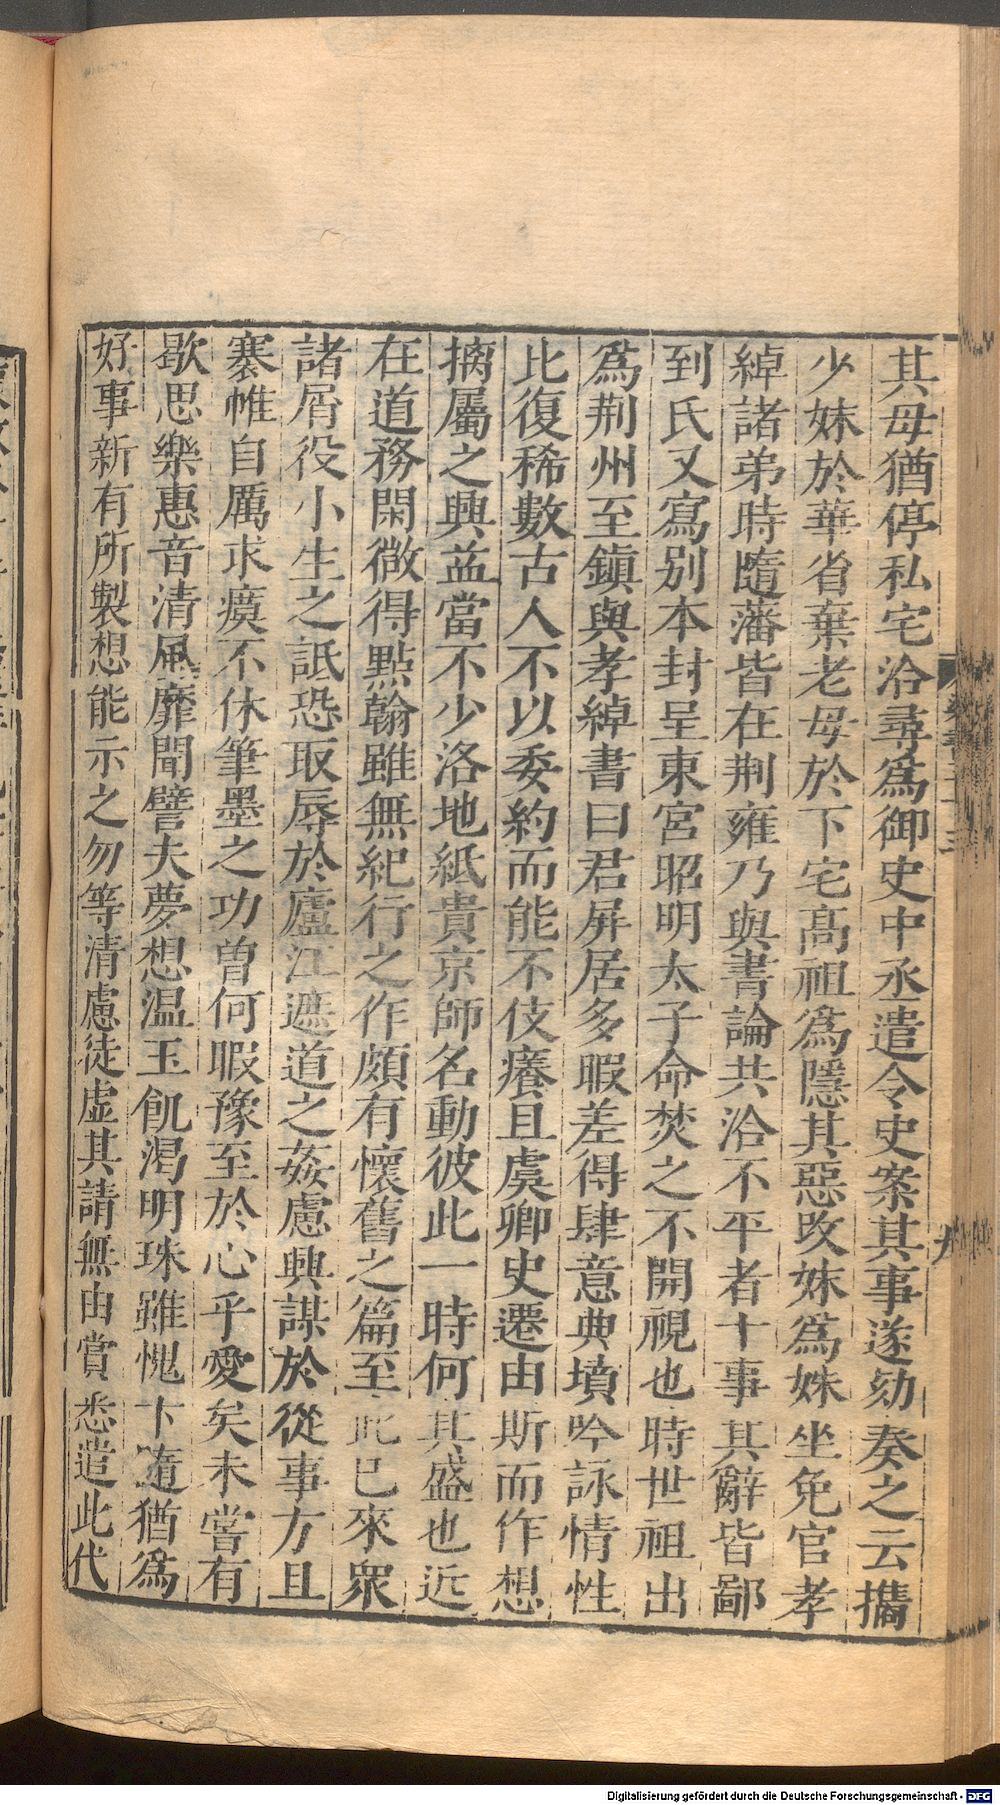 其母猶停私宅洽尋爲御史中丞遣令史案其事遂劾奏之云攜
少妹於華省棄老母於下宅高祖爲隱其惡改妹爲姝坐免官孝
綽諸弟時隨藩皆在荆雍乃與書論共洽不平者十事其辭皆鄙
到氏又寫别本封呈東宮昭明太子命焚之不開視也時世祖出
爲荆州至鎮與孝綽書曰君屏居多暇差得肆意典墳吟詠情性
比復稀數古人不以委約而能不伎癢且虞卿史遷由斯而作想
摛屬之興益當不少洛地紙貴京師名動彼此一時何其盛也近
在道務閑微得點翰雖無紀行之作頗有懷舊之篇至此已來衆
諸屑役小生之詆恐取辱於廬江遮道之姦慮興謀於從事方且
褰帷自厲求瘼不休筆墨之功曾何暇豫至於心乎愛矣未嘗有
歇思樂惠音清風靡聞譬夫夢想温玉飢渴明珠雖愧卞隨猶爲
好事新有所製想能示之勿等清慮徒虚其請無由賞悉遣此代
九
Digitalisierung gefördert durch die Deutsche Forschungsgemeinschaft - DFG